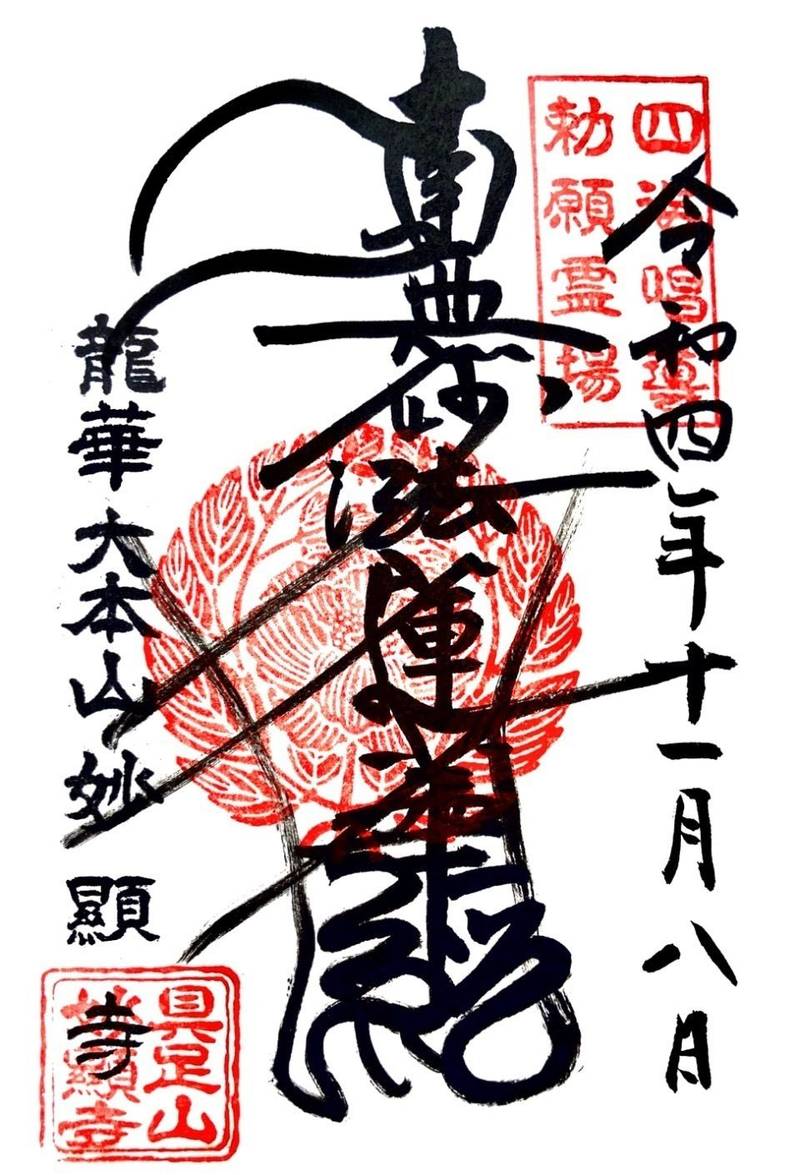 四海唱導
勅願霊場
令和四年十一月八日
南無妙法蓮華経
龍華大本山妙顯寺
具足山
妙顯寺